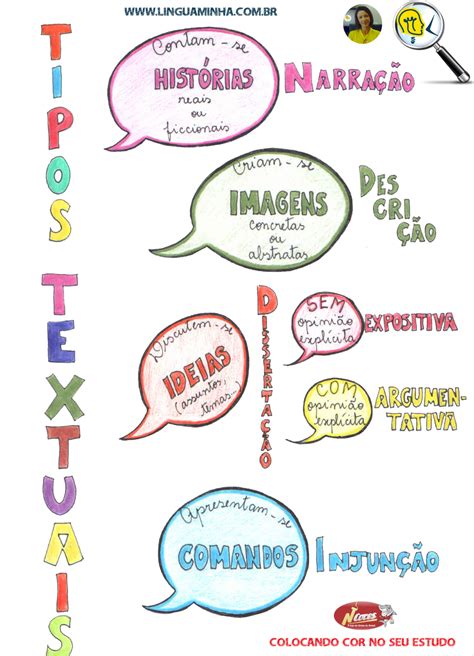 WWW.LINGUAMINHA.COM.BR
TIPOS TEXTUAIS
Contam-se
HISTÓRIAS
reais
ou
ficcionais
NARRAÇÃO
Criam-se
IMAGENS
concretas
ou
abstratas
DES
CRI
ÇÃO
Discutem-se
IDEIAS
(assuntos,
temas...)
DISSERTAÇÃO
SEM
opinião
explícita
EXPOSITIVA
COM
opinião
explícita
ARGUMEN-
TATIVA
Apresentam-se
COMANDOS
INJUNÇÃO
N CORES
COLOCANDO COR NO SEU ESTUDO